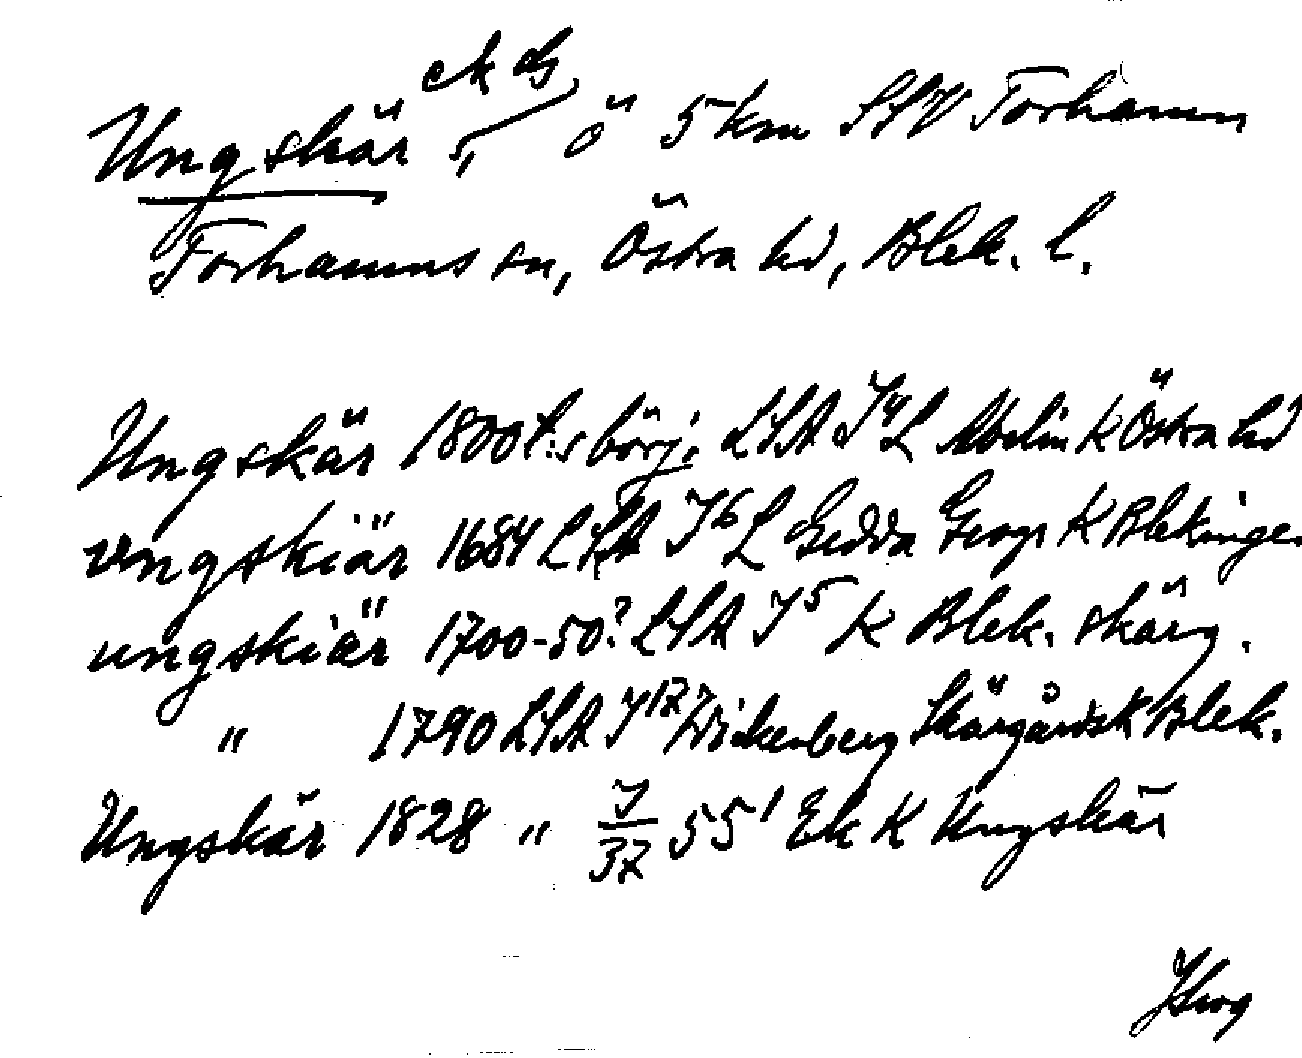 ek ds
Ungskär, ö 5 km SSV Torhamn
Torhamns sn, Östra hd, Blek. l.
Ungskär 1800t:s börj. LSA J4 L Abelin K Östra hd
vngskiär 1684 LSA J6 L Gedda Geogr K Blekinge
ungskiär 1700-50? LSA J5 K Blek. skärg.
" 1790 LSA J17 Wickenberg Skärgårdsk Blek.
Ungskär 1828 " J/37 55' Ek K Ungskär